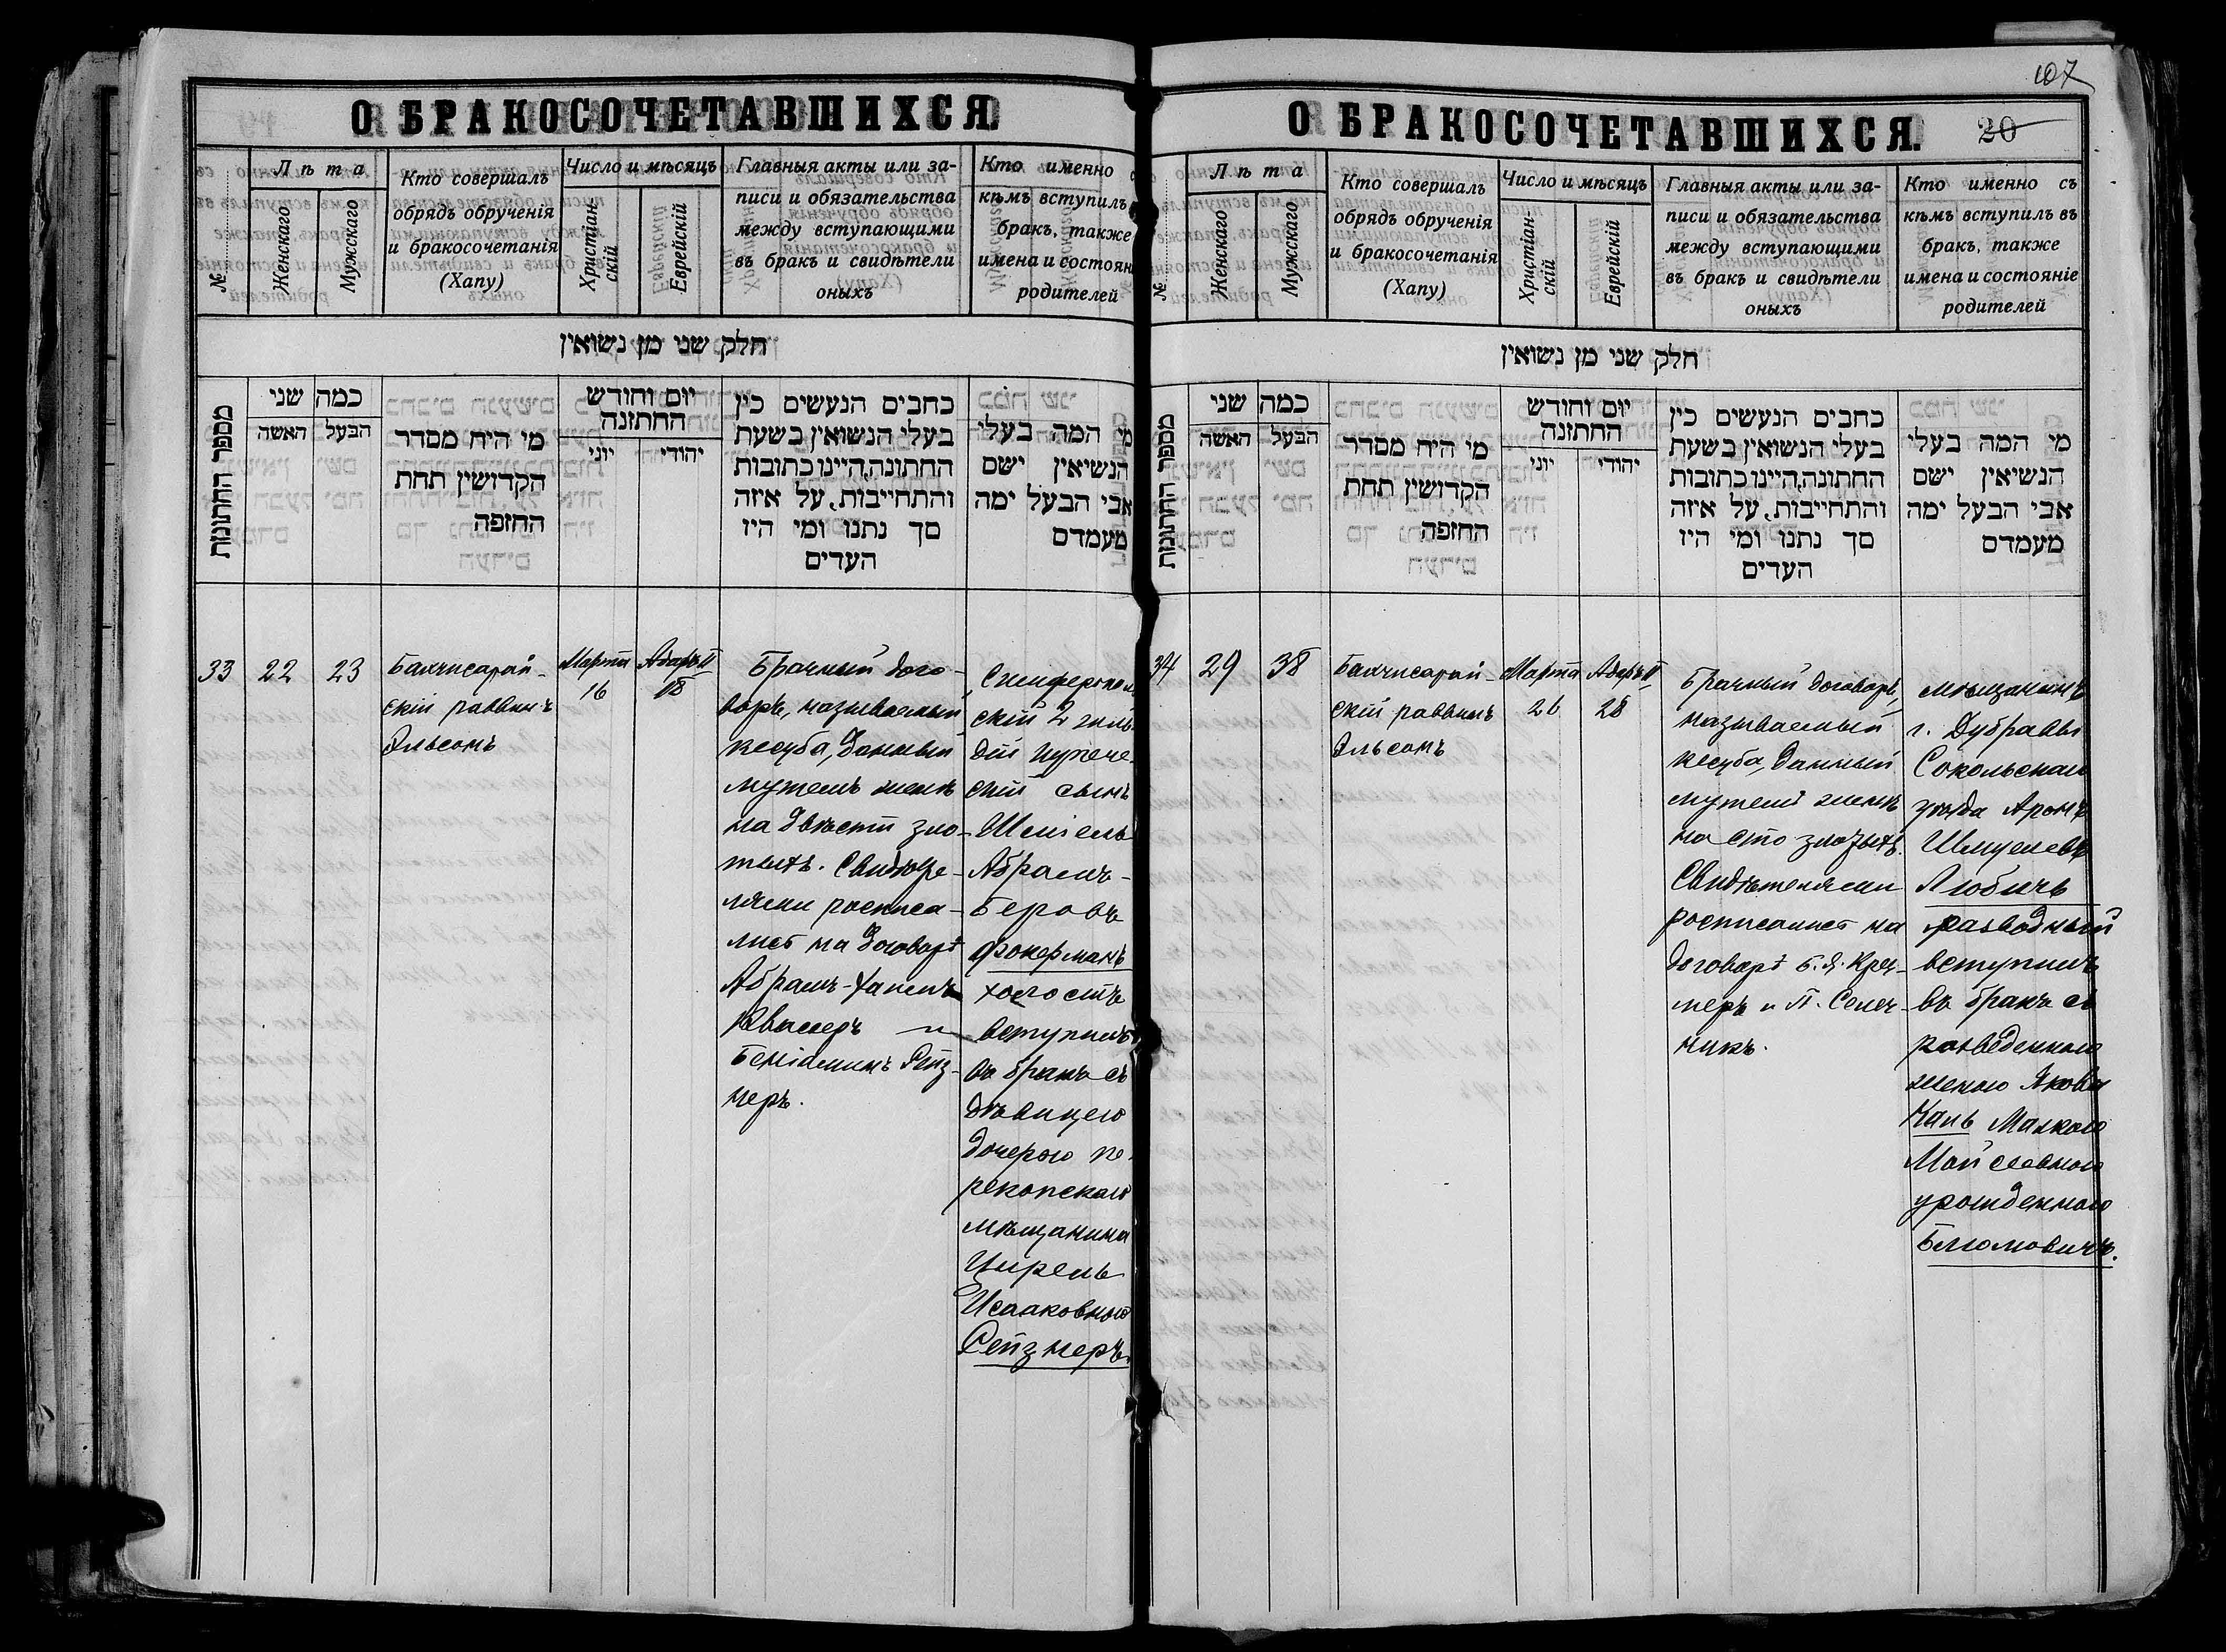 О БРАКОСОЧЕТАВШИХСЯ.
№
Лѣта
Женскаго
Мужскаго
Кто совершалъ
обрядъ обрученія
и бракосочетанія
(Хапу)
Число и мѣсяцъ
Христіан-
скій
Еврейскій
Главныя акты или за-
писи и обязательства
между вступающими
въ бракъ и свидѣтели
оныхъ
Кто именно
кѣмъ вступилъ
бракъ, также
имена и состоян
родителей
חלק שני מן נשואין
מספר החתונות
כמה שני
האשה
הבעל
מי היח מסדר
הקדושין תחת
החזפה
יום וחודש
החתזנה
יוני
יהודי
כתבים הנעשים כין
בעלי הנשואין בשעת
החתונה,היינו כתובות
והתחייבות, על איזה
סך נתנו ומי היז
העדים
מי המה בעלי
הנשיאין ישם
אבי הבעל ימה
מעמדם
33
22
23
Бахчисарай-
скій раввинъ
Эльсонъ
Марта
16
Адаръ II
18
Брачный дого-
воръ, называемый
кесуба, данный
мужемъ женѣ
на двѣсти зло-
тыхъ. Свидѣте-
лями росписа-
лись на договорѣ
Абрамъ-Хаимъ
Квалеръ и
Беніаминъ Рейз-
неръ.
Симферополь
скій 2 гиль-
діи купече-
скій сынъ
Абрамъ-
Беровъ
Фокерманъ
холостъ
вступилъ
въ бракъ съ
дѣвицею
дочерью пе-
рекопскаго
мѣщанина
Цирель
Исааковною
Рейзнеръ.
107
О БРАКОСОЧЕТАВШИХСЯ.
20
№
Лѣта
Женскаго
Мужскаго
Кто совершалъ
обрядъ обрученія
и бракосочетанія
(Хапу)
Число и мѣсяцъ
Христіан-
скій
Еврейскій
Главныя акты или за-
писи и обязательства
между вступающими
въ бракъ и свидѣтели
оныхъ
Кто именно съ
кѣмъ вступилъ въ
бракъ, также
имена и состояніе
родителей
חלק שני מן נשואין
מספר החתונות
כמה שני
האשה
הבעל
מי היח מסדר
הקדושין תחת
החזפה
יום וחודש
החתזנה
יוני
יהודי
כתבים הנעשים כין
בעלי הנשואין בשעת
החתונה,היינו כתובות
והתחייבות, על איזה
סך נתנו ומי היז
העדים
מי המה בעלי
הנשיאין ישם
אבי הבעל ימה
מעמדם
34
29
38
Бахчисарай-
скій раввинъ
Эльсонъ
Марта
26
Адаръ II
28
Брачный договоръ,
называемый
кесуба, данный
мужемъ женѣ
на сто злотыхъ.
Свидѣтелями
росписались на
договорѣ Б. Я. Кре-
меръ и П.
мѣщанинъ
г. Дубравы
Сокольскаго
уѣзда Аронъ
Шмулевъ
Любичъ
разводный
вступилъ
въ бракъ съ
разведенною
женою Якова
Капъ Малкою
Мойсеевною
урожденною
Блюмовичъ.